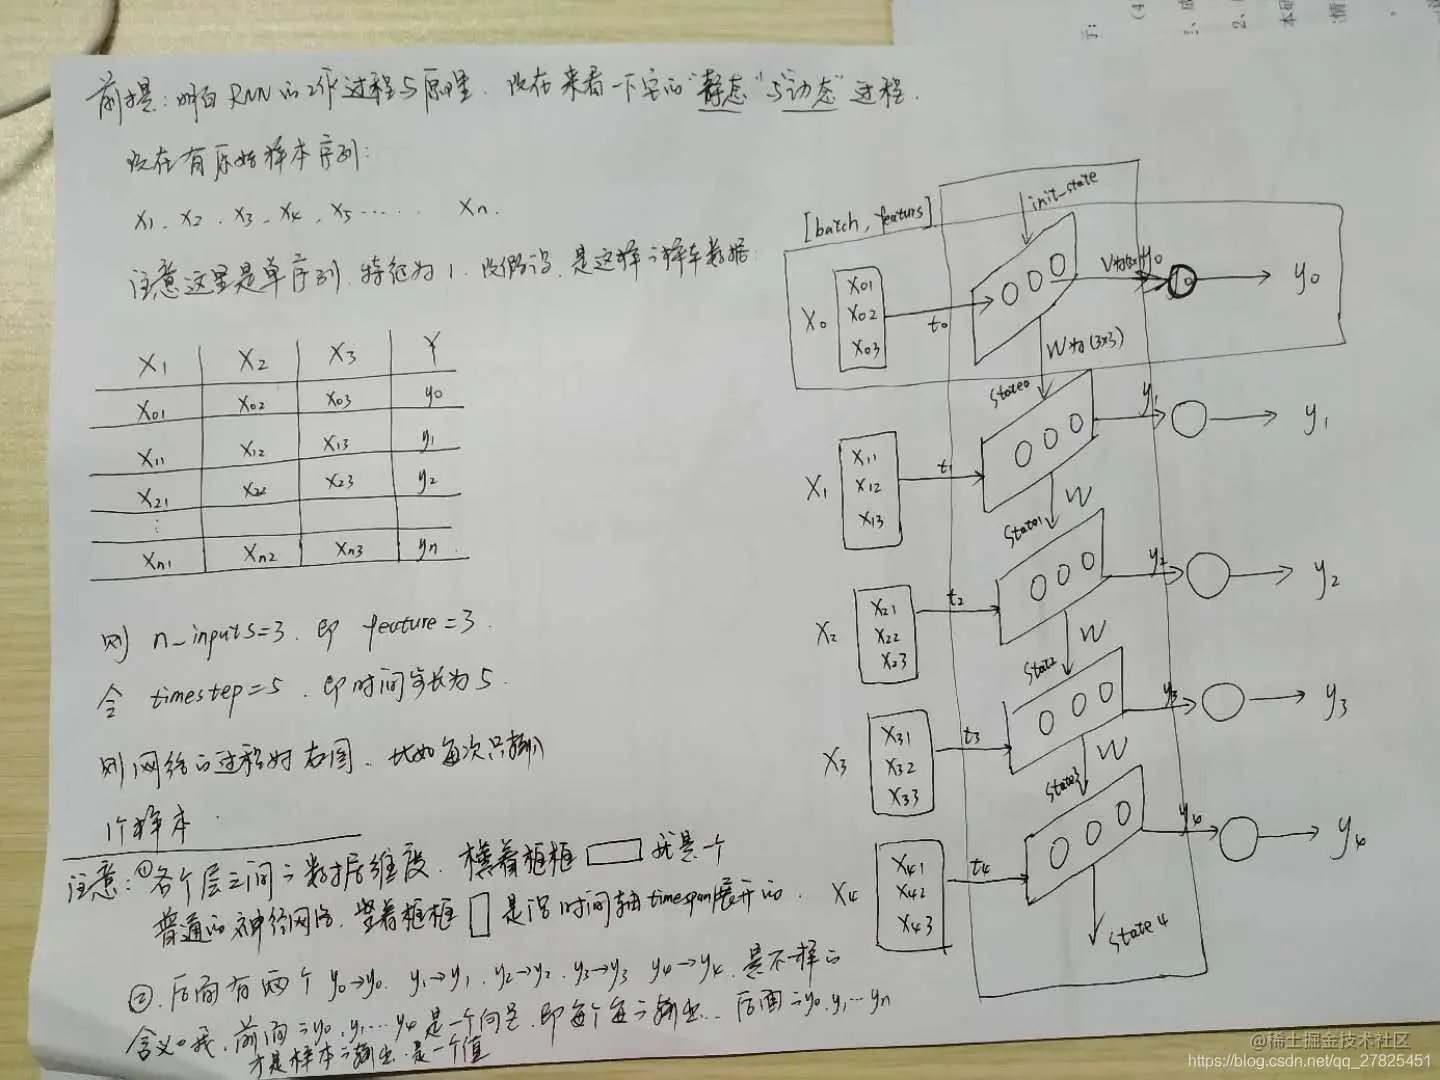 前提：明白RNN的工作过程与原理．现在来看一下它的"静态"与"动态"过程．
现在有原始样本序列：
X1．X2．X3．X4．X5…… Xn．
注意这里是单序列．特征为1．
是这样之样本数据：
X1 X2 X3 Y
X01 X02 X03 y0
X11 X12 X13 y1
X21 X22 X23 y2
⋮
Xn1 Xn2 Xn3 yn
则 n_inputs=3．即 feature=3．
令 timestep=5．即时间步长为5．
则网络的过程如右图．比如每次只
1个样本．
注意：①各个层之间之数据维度．横着框框 就是一个
普通的神经网络．竖着框框 是沿时间轴timespan展开的．
②．后面有两个 y0→y0．y1→y1．y2→y2．y3→y3 y4→y4．是不一样的
含义．前面之y0．y1…y4是一个向量．即每个之输出．后面之y0．y1…yn
才是样本之输出．是一个值
[batch，featurs]
init_state
X0
X01
X02
X03
t0
y0
y0
W为(3x3)
state0
X1
X11
X12
X13
t1
y1
y1
W
state1
X2
X21
X22
X23
t2
y2
y2
W
state2
X3
X31
X32
X33
t3
y3
y3
W
state3
X4
X41
X42
X43
t4
y4
y4
state4
示：
(4
2、
本
@稀土掘金技术社区
https://blog.csdn.net/qq_27825451